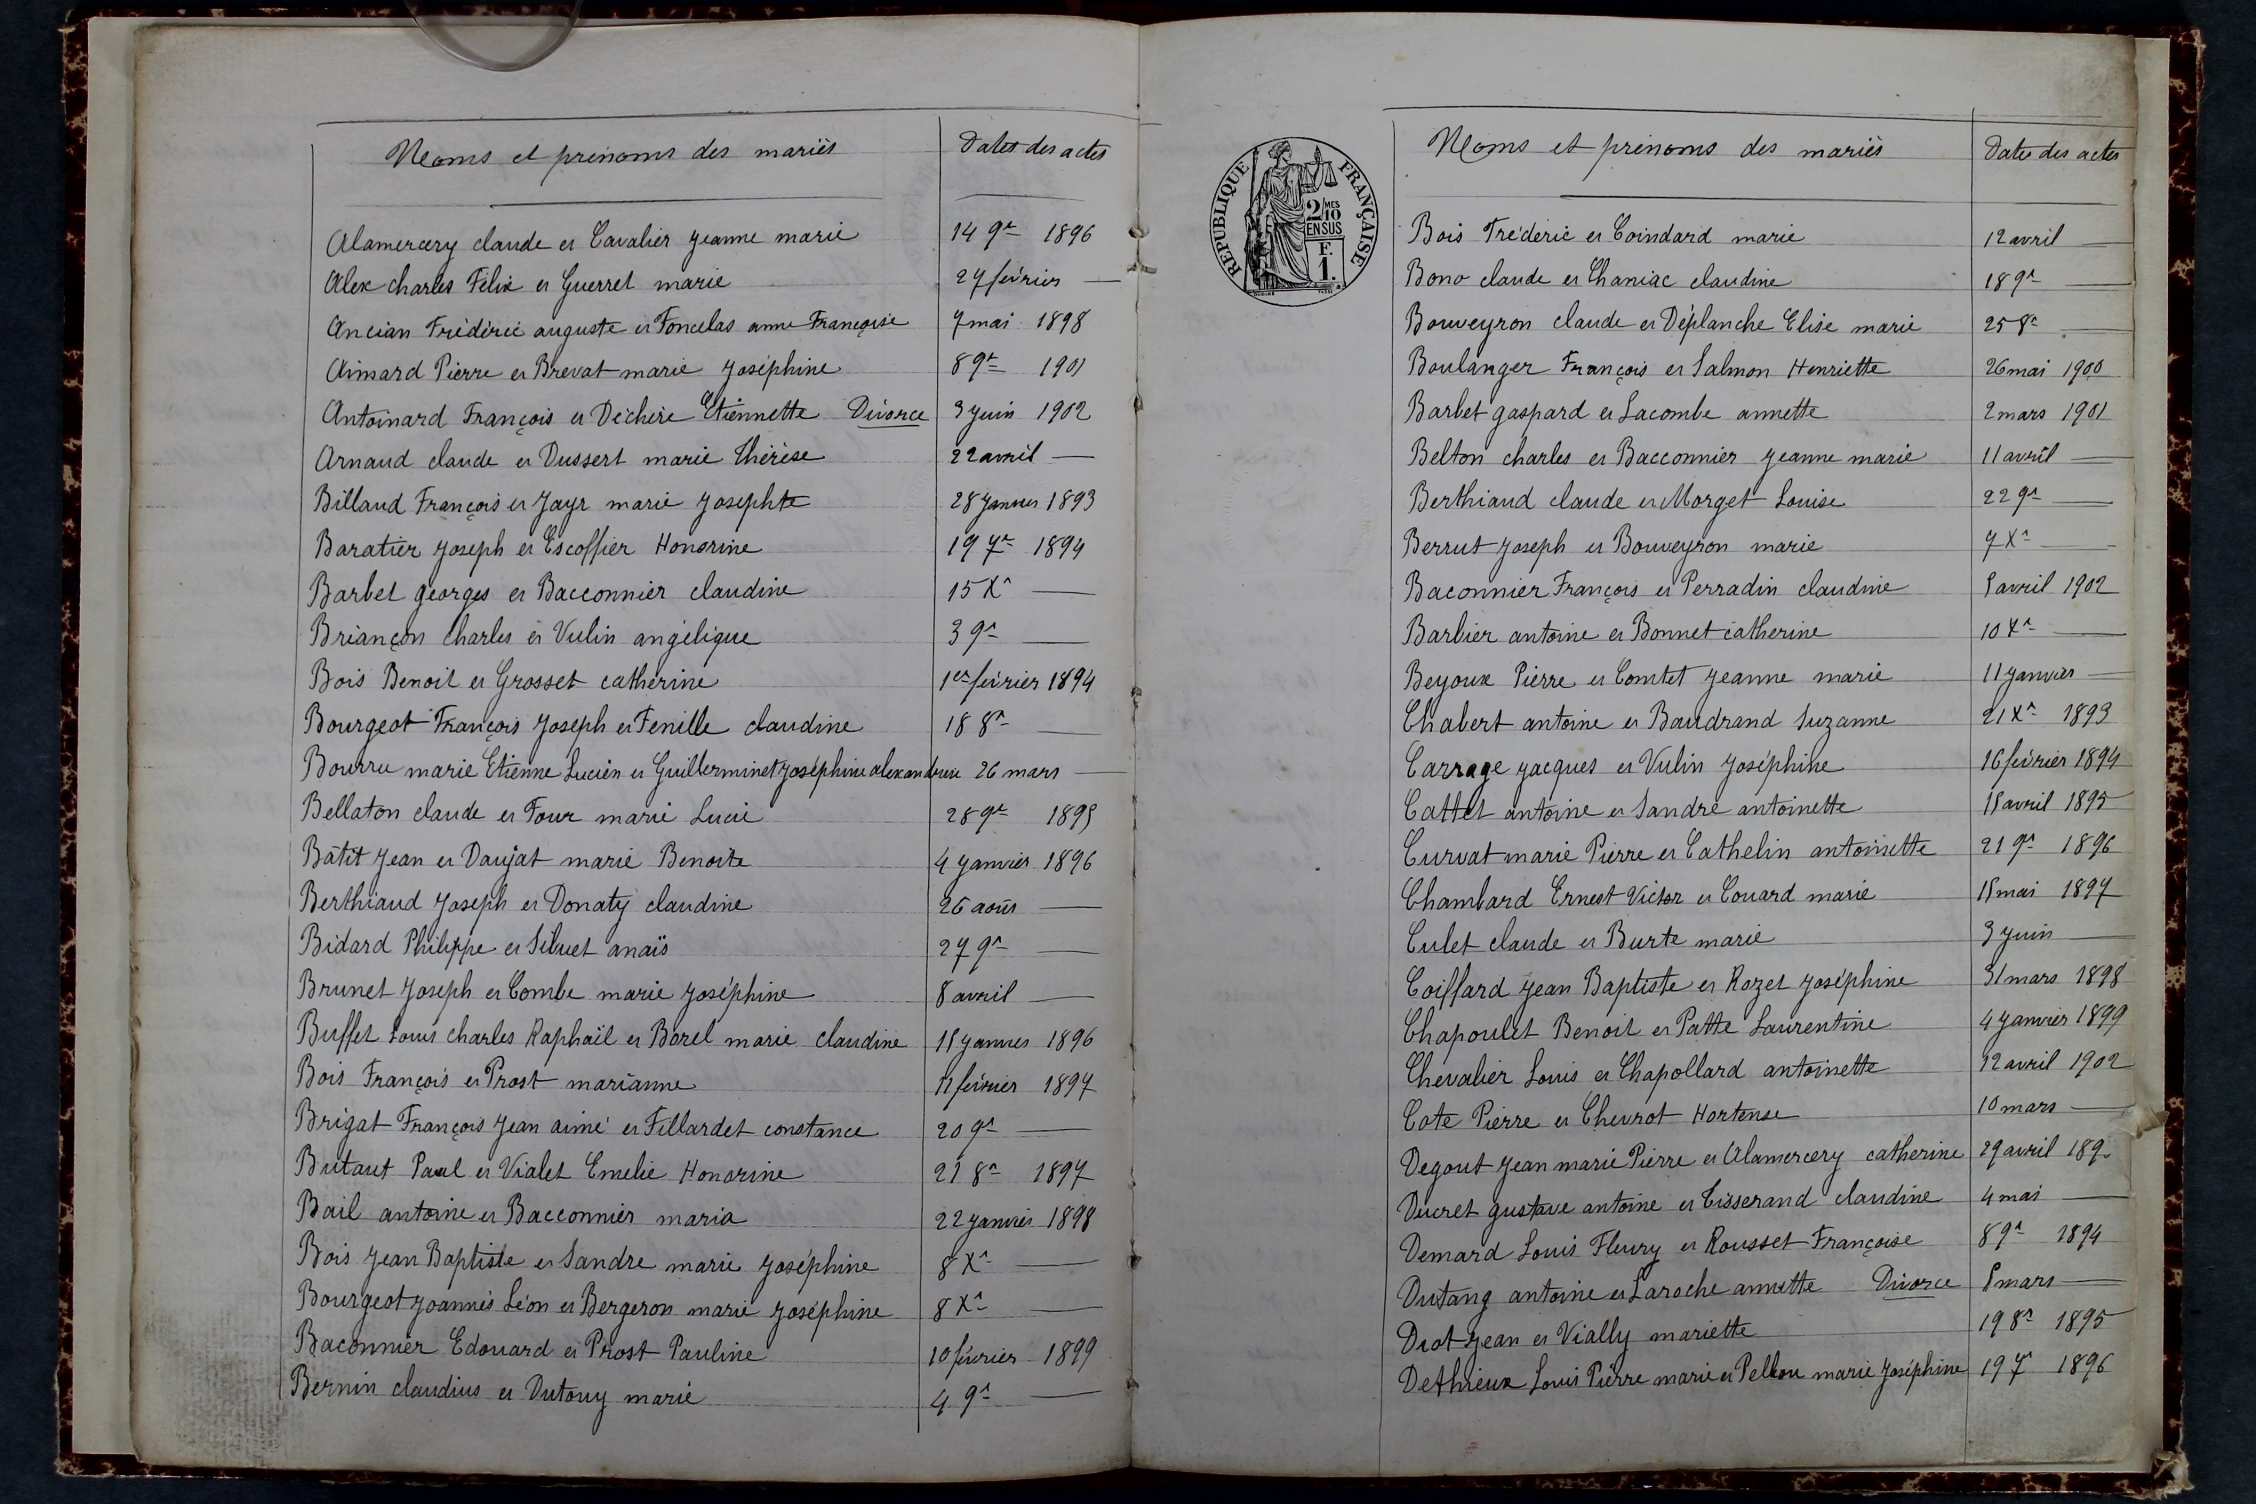 Noms et prénoms des mariés
Dates des actes
Alamercery claude et Cavalier jeanne marie 14 9re 1896
Alex charles Félix et Guerret marie 27 février —
Ancian Frédéric auguste et Foncelas anne Françoise 7 mai 1898
Aimard Pierre et Brevat marie Joséphine 8 9re 1901
Antoinard François et Déchère Etiennette Divorce 3 juin 1902
Arnaud claude et Dussert marie Thérèse 22 avril —
Billaud François et Jayr marie Josephte 28 janvier 1893
Baratier Joseph et Escoffier Honorine 19 7re 1894
Barbet georges et Bacconnier claudine 15 Xre —
Briançon charles et Vulin angélique 3 9re —
Bois Benoit et Grosset catherine 1er février 1894
Bourgeot François Joseph et Fenille claudine 18 8re —
Bourru marie Etienne Lucien et Guillerminet Joséphine alexandrine 26 mars —
Bellaton claude et Four marie Lucie 28 9re 1895
Bâtit Jean et Daujat marie Benoite 4 janvier 1896
Berthiaud Joseph et Donaty claudine 26 août —
Bidard Philippe et Sibuet anaïs 27 9re —
Brunet Joseph et Combe marie Joséphine 8 avril —
Buffet Louis charles Raphaël et Borel marie claudine 15 janvier 1896
Bois François et Prost marianne 11 février 1897
Brigat François Jean aimé et Fillardet constance 20 9re —
Butaut Paul et Vialet Emelie Honorine 21 8re 1897
Bail antoine et Bacconnier maria 22 janvier 1898
Bois Jean Baptiste et Sandre marie Joséphine 8 Xre —
Bourgeot Joannès Léon et Bergeron marie Joséphine 8 Xre —
Baconnier Edouard et Prost Pauline 10 février 1899
Bernin claudius et Dutouy marie 4 9re —
REPUBLIQUE FRANÇAISE
2/10 MES
EN SUS
F.
1.
Noms et prénoms des mariés
Dates des actes
Bois Frédéric et Coindard marie 12 avril —
Bono claude et Chaniac claudine 18 9re —
Bouveyron claude et Déplanche Elise marie 25 8re —
Boulanger François et Salmon Henriette 26 mai 1900
Barbet gaspard et Lacombe annette 2 mars 1901
Belton charles et Bacconnier jeanne marie 11 avril —
Berthiaud claude et Morget Louise 22 9re —
Berrut Joseph et Bouveyron marie 7 Xre —
Baconnier François et Perradin claudine 5 avril 1902
Barbier antoine et Bonnet catherine 10 Xre —
Beyoux Pierre et Comtet jeanne marie 11 janvier —
Chabert antoine et Baudrand Suzanne 21 Xre 1893
Carrage Jacques et Vulin Joséphine 16 février 1894
Cattet antoine et Sandre antoinette 15 avril 1895
Curvat marie Pierre et Cathelin antoinette 21 9re 1896
Chambard Ernest Victor et Couard marie 15 mai 1897
Culet claude et Burte marie 3 juin —
Coiffard Jean Baptiste et Rozet Joséphine 31 mars 1898
Chapoulet Benoit et Patte Laurentine 4 janvier 1899
Chevalier Louis et Chapollard antoinette 12 avril 1902
Cote Pierre et Chevrot Hortense 10 mars —
Degout Jean marie Pierre et Alamercery catherine 29 avril
Ducret gustave antoine et Tisserand claudine 4 mai —
Demard Louis Fleury et Rousset Françoise 8 9re 1894
Dutang antoine et Laroche annette Divorce 5 mars —
Diot Jean et Vially mariette 19 8re 1895
Dethieux Louis Pierre marie et Pellou marie Joséphine 19 7re 1896